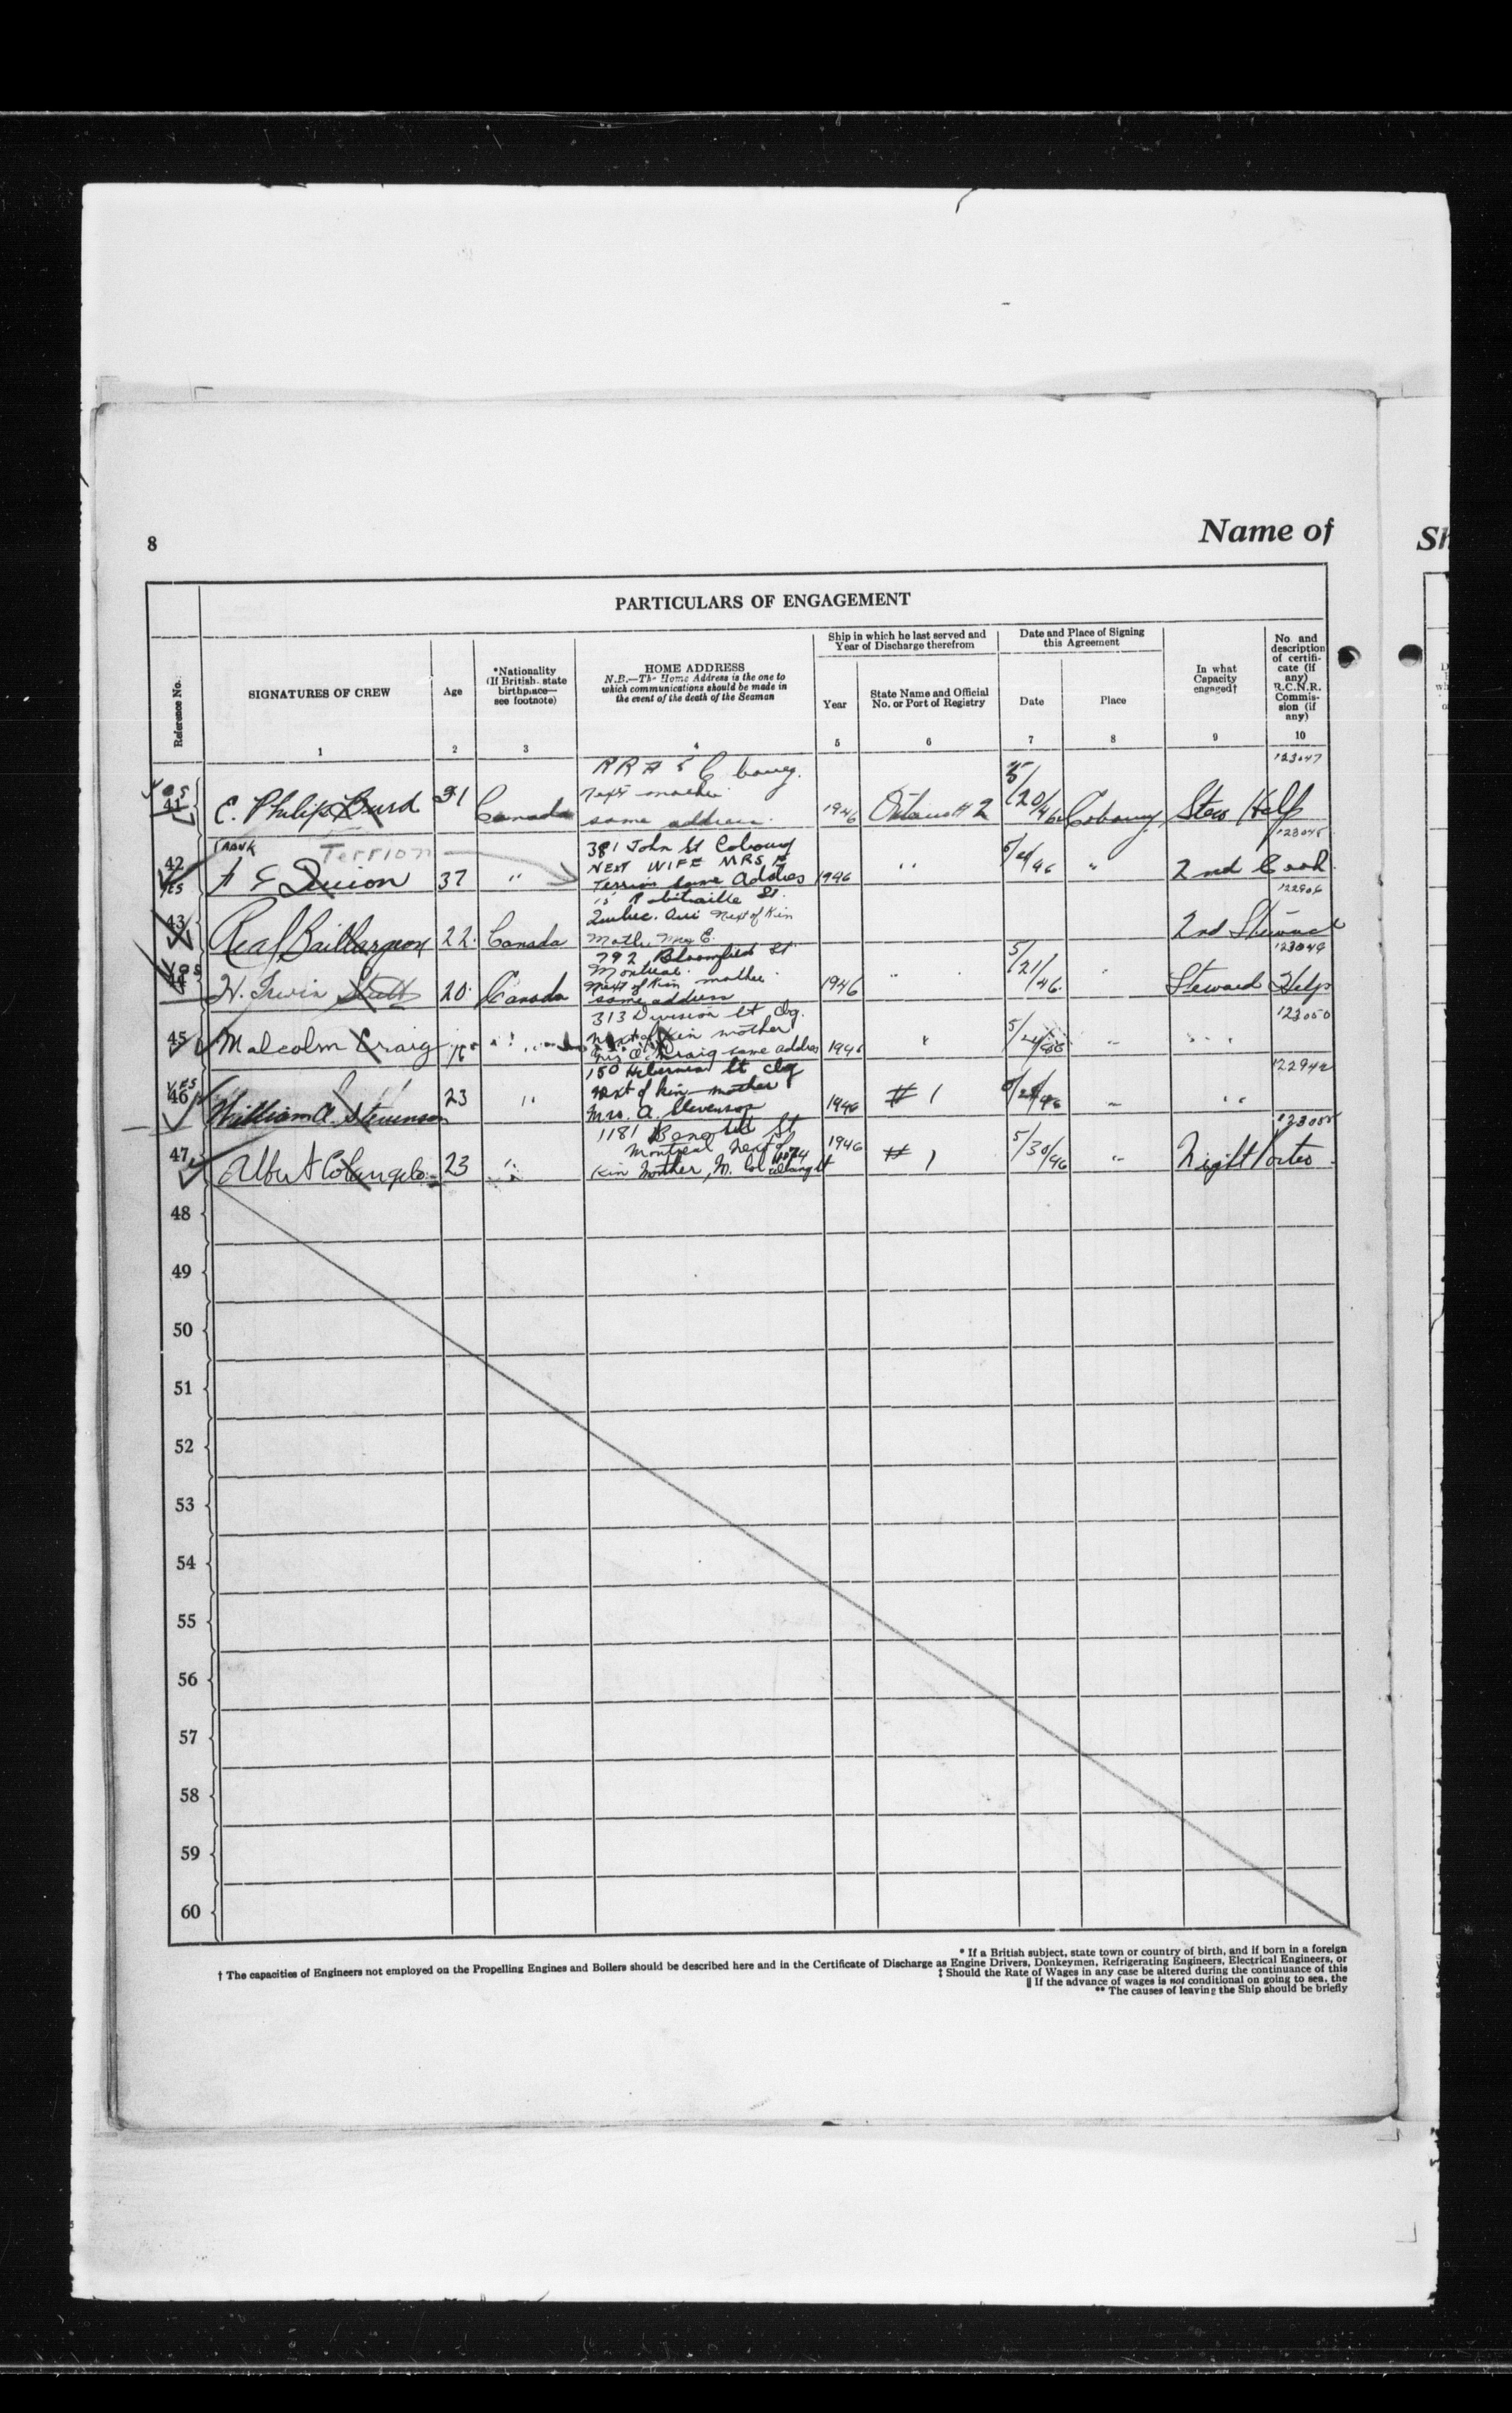 8
Name of
Sh
PARTICULARS OF ENGAGEMENT
Reference No.
SIGNATURES OF CREW
Age
*Nationality
(If British, state
birthplace—
see footnote)
HOME ADDRESS
N.B.—The Home Address is the one to
which communications should be made in
the event of the death of the Seaman
Ship in which he last served and
Year of Discharge therefrom
Year
State Name and Official
No. or Port of Registry
Date and Place of Signing
this Agreement
Date
Place
In what
Capacity
engaged†
No and
description
of certifi-
cate (if
any)
R.C.N.R.
Commis-
sion (if
any)
1 2 3 4 5 6 7 8 9 10
123047
yes
41 E. Philip Burd 31 Canada
next mother
same address. 1946 Ontario # 2 5/20/46 Cobourg Stew Help
123048
Terrion
42 37 "
381 John St Cobourg
NEXT WIFE MRS
Terrion same Address 1946 " " 2nd Cook
yes
122906
43 Real Baillargeon 22 Canada
Robitaille St.
Quebec. Next of Kin
Mother Mrs E. 2nd Steward
123049
yes
44 H. Irwin 20 Canada
792 Bloomfield St
Montreal.
Next of Kin mother
same address 1946 " 5/21/46 " Steward Help
123050
45 Malcolm Craig 16 "
313 Division St Cbg.
Next of Kin mother
Craig same addres 1946 " "
122942
yes
46 William A. Stevenson 23 "
150 St Cbg
next of kin mother
Mrs. A. Stevenson 1946 # 1 " "
47 Albert Colangelo 23 "
1181 Benoit St
Montreal next of
kin Mother, M. 1946 # 1 5/30/46 " Night Porter
48
49
50
51
52
53
54
55
56
57
58
59
60
* If a British subject, state town or country of birth, and if born in a foreign
† The capacities of Engineers not employed on the Propelling Engines and Boilers should be described here and in the Certificate of Discharge as Engine Drivers, Donkeymen, Refrigerating Engineers, Electrical Engineers, or
‡ Should the Rate of Wages in any case be altered during the continuance of this
‖ If the advance of wages is not conditional on going to sea, the
** The causes of leaving the Ship should be briefly